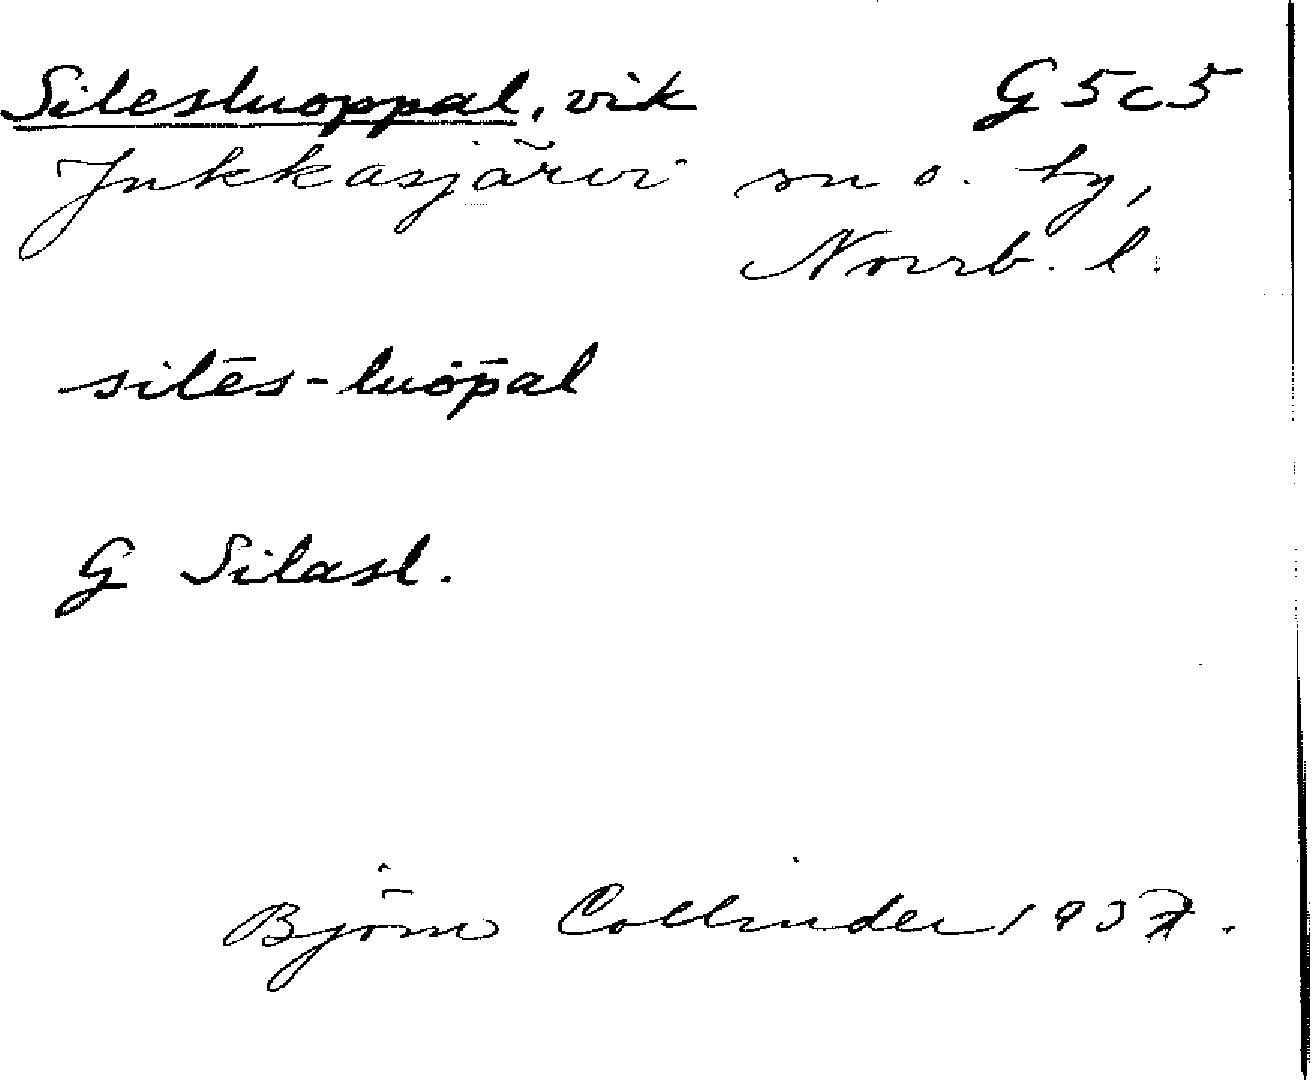 Silesluoppal, vik G5c5
Jukkasjärvi sn o. by,
Norrb. l.
silēs-luòp̄al
G Silasl.
Björn Collinder 1937.